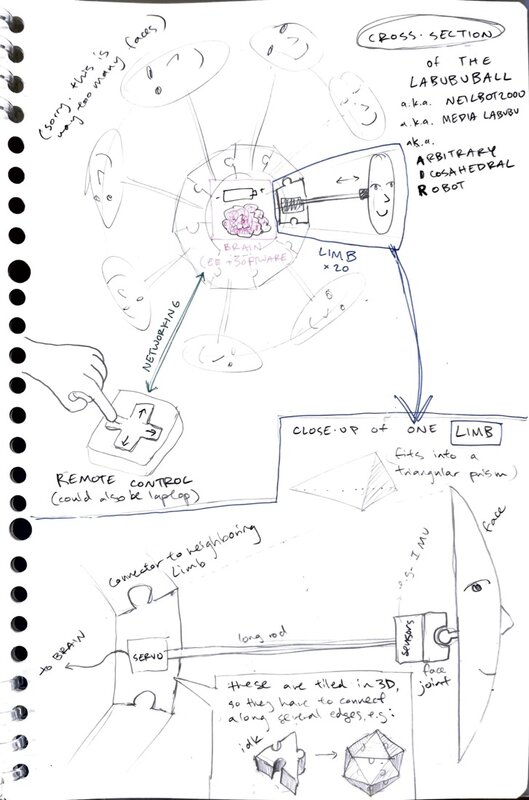 (sorry, this is
way too many faces)
CROSS-SECTION
of THE
LABUBUBALL
a.k.a. NEILBOT2000
a.k.a. MEDIA LABUBU
a.k.a.
ARBITRARY
ICOSAHEDRAL
ROBOT
- +
BRAIN
(EE + SOFTWARE)
LIMB
×20
NETWORKING
REMOTE CONTROL
(could also be laptop)
CLOSE-UP of ONE LIMB
(fits into a
triangular prism)
connector to neighboring
Limb
to BRAIN
SERVO
long rod
e.g. IMU
SENSORS
face
joint
face
these are tiled in 3D,
so they have to connect
along several edges, e.g:
idk